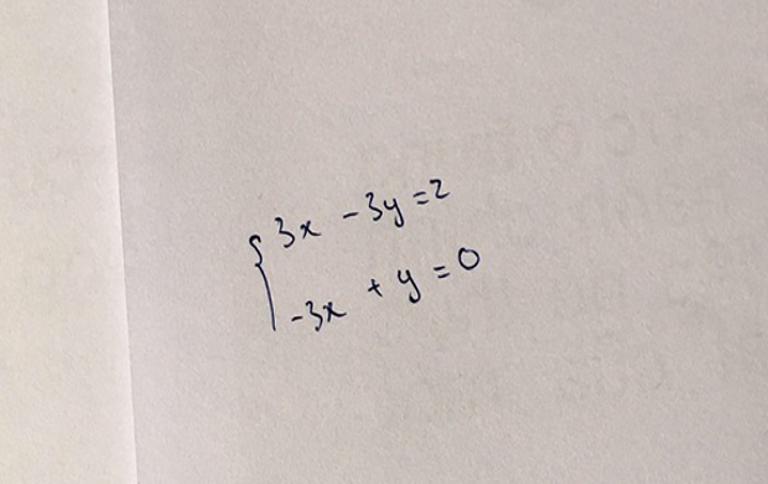 3x - 3y = 2
-3x + y = 0